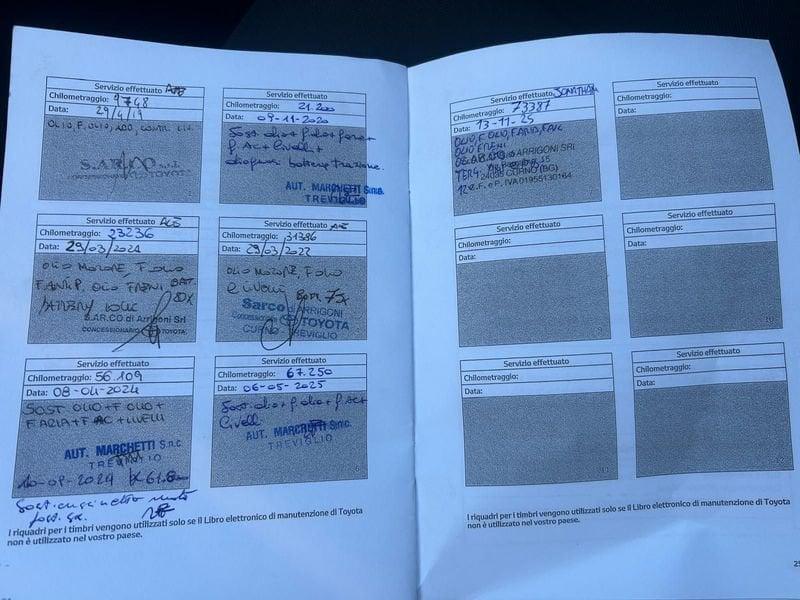 Servizio effettuato
Chilometraggio: 9748
Data: 29/4/19
S.AR.CO S.r.l.
CONCESSIONARIO TOYOTA
Servizio effettuato
Chilometraggio: 21.200
Data: 09-11-2020
Sost. olio + f. olio +
f. AC + livelli +
diagnosi batteria trazione.
AUT. MARCHETTI S.n.c.
TREVIGLIO
Servizio effettuato
Chilometraggio: 23236
Data: 29/03/2021
OLIO MOTORE, F. OLIO
OLIO FRENI
S.AR.CO di Arrigoni Srl
CONCESSIONARIO TOYOTA
Servizio effettuato
Chilometraggio: 31386
Data: 29/03/2022
OLIO MOTORE, F OLIO
E LIVELLI
Sarco di ARRIGONI
Concessionario TOYOTA
CURNO TREVIGLIO
Servizio effettuato
Chilometraggio: 56.109
Data: 08-04-2024
SOST OLIO + F OLIO +
F ARIA + F AC + LIVELLI
AUT. MARCHETTI S.n.c
TREVIGLIO
Servizio effettuato
Chilometraggio: 67.250
Data: 06-05-2025
Sost. olio + f. olio + f. AC +
livelli
AUT. MARCHETTI S.n.c.
TREVIGLIO
6
I riquadri per i timbri vengono utilizzati solo se il Libro elettronico di manutenzione di Toyota
non è utilizzato nel vostro paese.
Servizio effettuato JONATHAN
Chilometraggio: 73387
Data: 13-11-25
OLIO, F OLIO, F ARIA, F AC
OLIO FRENI
ARRIGONI SRL
24035 CURNO (BG)
C.F. e P. IVA 01955130164
Servizio effettuato
Chilometraggio:
Data:
Servizio effettuato
Chilometraggio:
Data:
Servizio effettuato
Chilometraggio:
Data:
10
Servizio effettuato
Chilometraggio:
Data:
11
Servizio effettuato
Chilometraggio:
Data:
I riquadri per i timbri vengono utilizzati solo se il Libro elettronico di manutenzione di Toyota
non è utilizzato nel vostro paese.